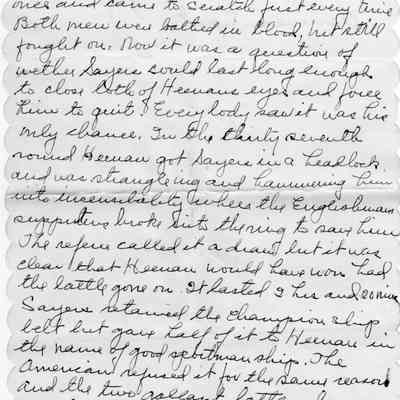 ones and came to scratch first every time
Both men were bathed in blood, but still
fought on. Now it was a question of
wether Sayers could last long enough
to close both of Heenans eyes and force
him to quit. Everybody saw it was his
only chance. In the thirty seventh
round Heenan got Sayers in a headlock
and was strangleing and hammering him
into insensibility, when the Englishmans
supporters broke into the ring to save him
The referee called it a draw, but it was
clear that Heenan would have won had
the battle gone on. It lasted 2 hrs and 20 mins
Sayers retained the championship
belt but gave half of it to Heenan in
the name of good sportmanship. The
American refused it for the same reason
and the two gallant